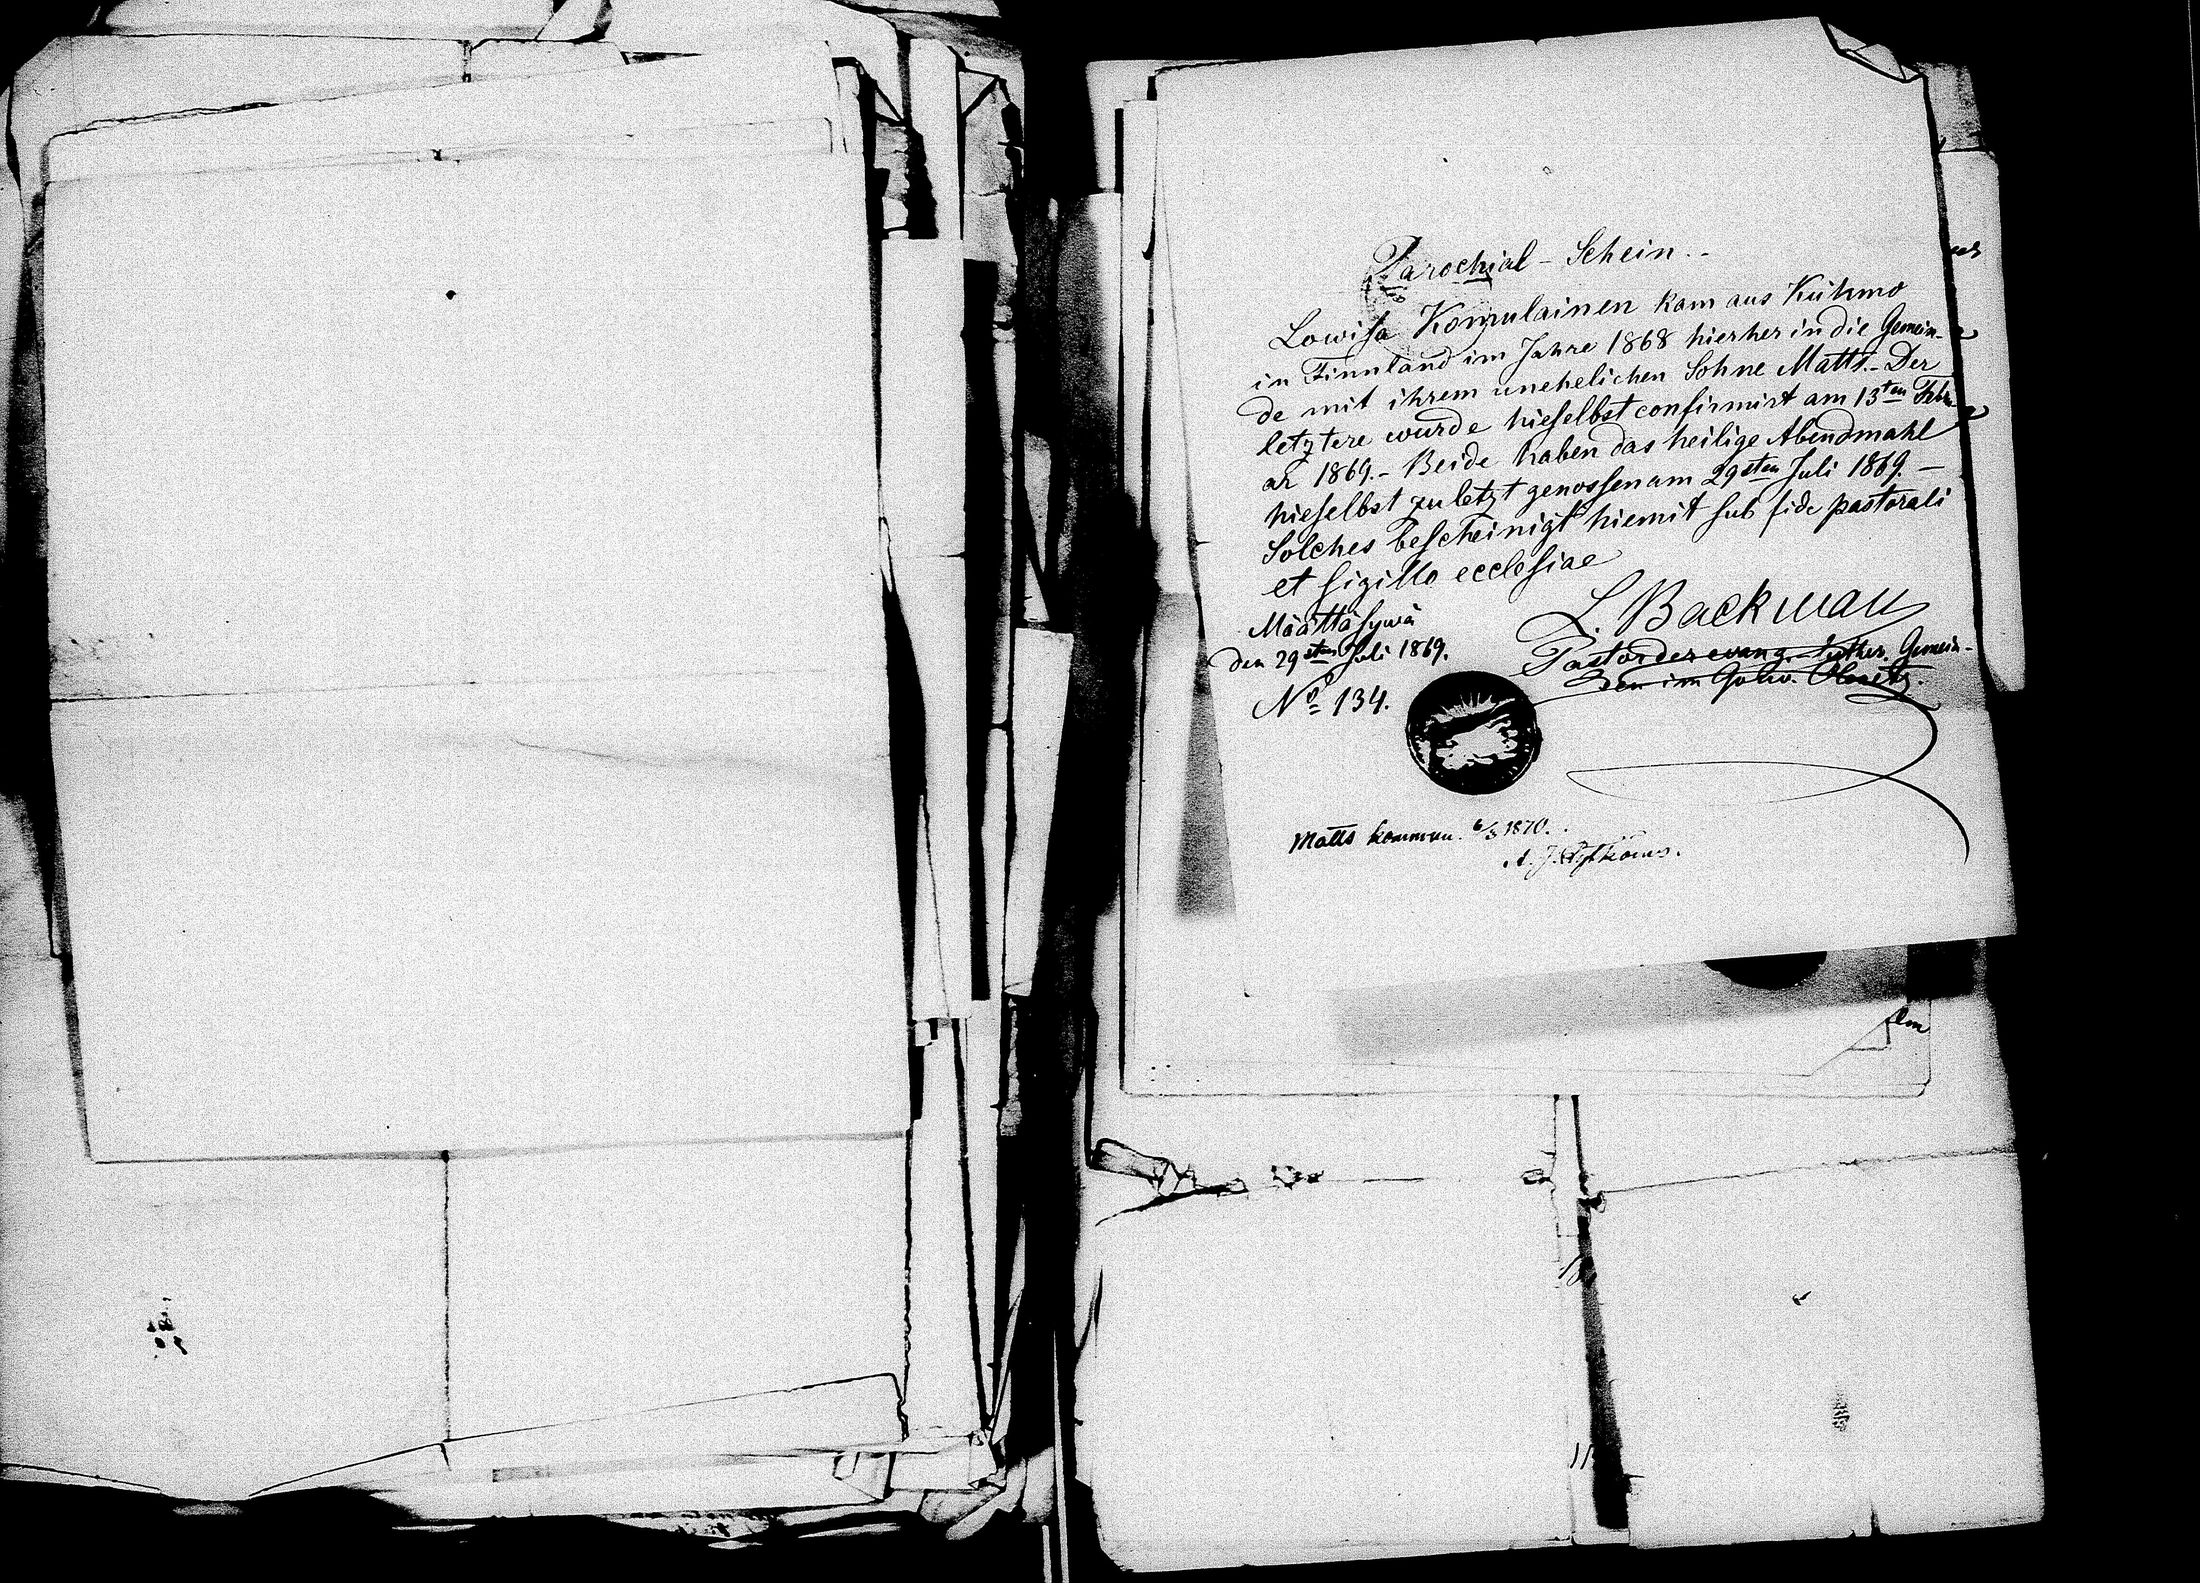 Parochial-Schein.
Lowisa Komulainen kam aus Kuhmo
in Finnland im Jahre 1868 hierher in die Gemein-
de mit ihrem unehelichen Sohne Matts.- Der
letztere wurde hieselbst confirmirt am 13ten Febru-
ar 1869.- Beide haben das heilige Abendmahl
hieselbst zuletzt genossen am 29sten Juli 1869.-
Solches bescheinigt hiemit sub fide pastorali
et sigillo ecclesiae
L. Backman
Määttäsywä
den 29sten Juli 1869.
Pastor der evang. luther. Gemein-
den im Gouv. Olonetz.
No 134.
Matts kommun. 6/3 1870.